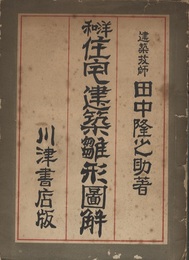 建築技師 田中隆之助著
和洋 住宅建築雛形圖解
川津書店版